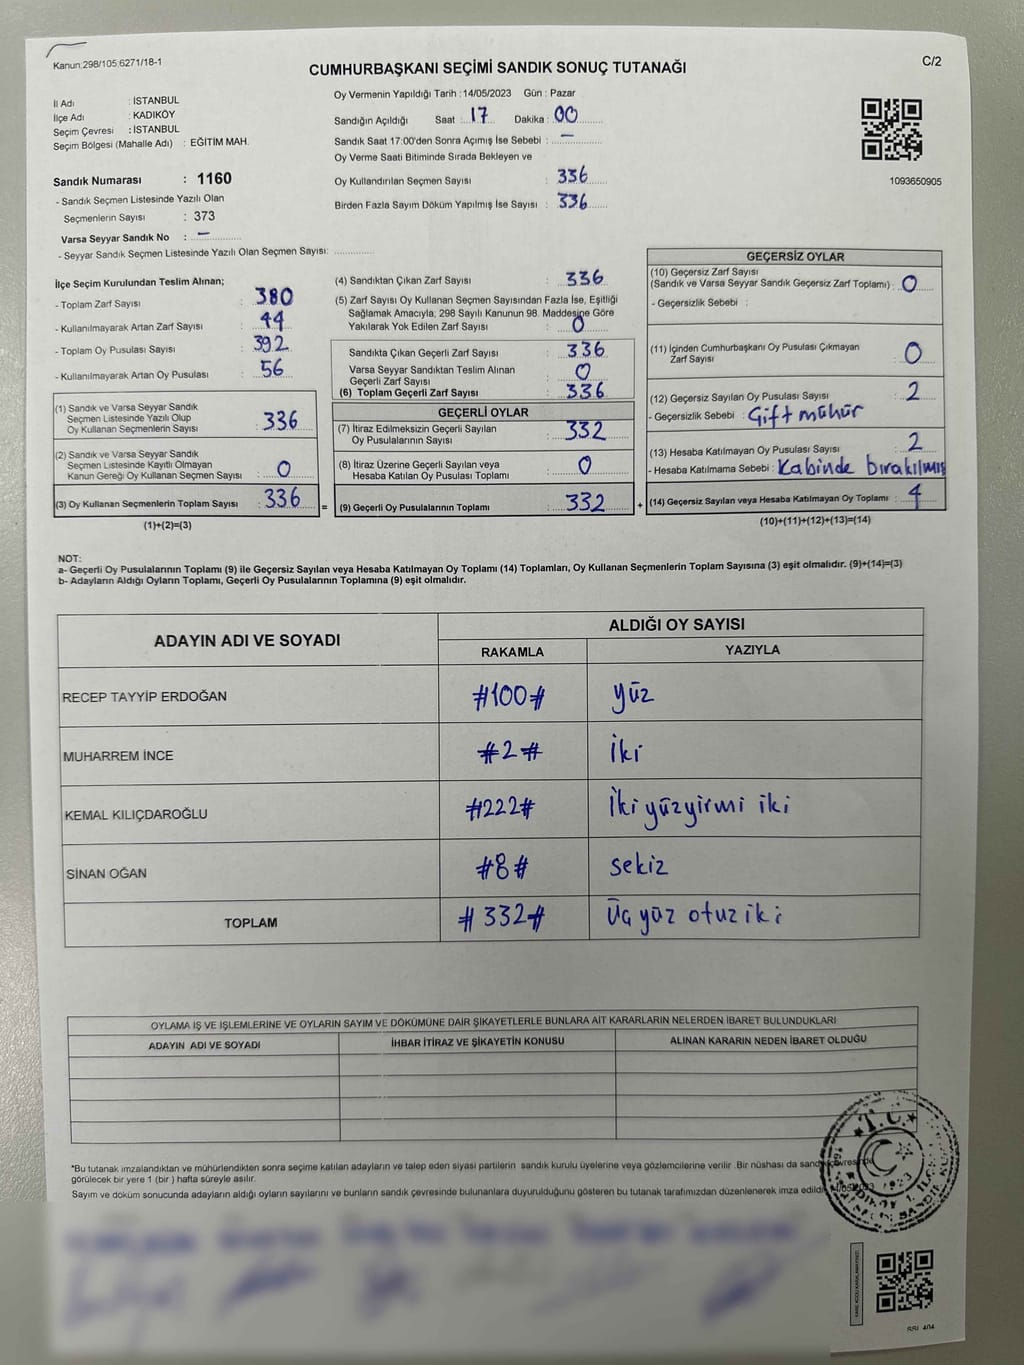 Kanun:298/105,6271/18-1
C/2
CUMHURBAŞKANI SEÇİMİ SANDIK SONUÇ TUTANAĞI
İl Adı : İSTANBUL
İlçe Adı : KADIKÖY
Seçim Çevresi : İSTANBUL
Seçim Bölgesi (Mahalle Adı) : EĞİTİM MAH.
Sandık Numarası : 1160
- Sandık Seçmen Listesinde Yazılı Olan
Seçmenlerin Sayısı : 373
Varsa Seyyar Sandık No : –
- Seyyar Sandık Seçmen Listesinde Yazılı Olan Seçmen Sayısı:
Oy Vermenin Yapıldığı Tarih :14/05/2023 Gün : Pazar
Sandığın Açıldığı Saat : 17 Dakika : 00
Sandık Saat 17:00'den Sonra Açımış İse Sebebi : –
Oy Verme Saati Bitiminde Sırada Bekleyen ve
Oy Kullandırılan Seçmen Sayısı : 336
Birden Fazla Sayım Döküm Yapılmış İse Sayısı : 336
1093650905
İlçe Seçim Kurulundan Teslim Alınan;
- Toplam Zarf Sayısı : 380
- Kullanılmayarak Artan Zarf Sayısı : 44
- Toplam Oy Pusulası Sayısı : 392
- Kullanılmayarak Artan Oy Pusulası : 56
(1) Sandık ve Varsa Seyyar Sandık
Seçmen Listesinde Yazılı Olup
Oy Kullanan Seçmenlerin Sayısı : 336
(2) Sandık ve Varsa Seyyar Sandık
Seçmen Listesinde Kayıtlı Olmayan
Kanun Gereği Oy Kullanan Seçmen Sayısı : 0
(3) Oy Kullanan Seçmenlerin Toplam Sayısı : 336
(1)+(2)=(3)
(4) Sandıktan Çıkan Zarf Sayısı : 336
(5) Zarf Sayısı Oy Kullanan Seçmen Sayısından Fazla İse, Eşitliği
Sağlamak Amacıyla, 298 Sayılı Kanunun 98. Maddesine Göre
Yakılarak Yok Edilen Zarf Sayısı : 0
Sandıkta Çıkan Geçerli Zarf Sayısı : 336
Varsa Seyyar Sandıktan Teslim Alınan
Geçerli Zarf Sayısı : 0
(6) Toplam Geçerli Zarf Sayısı : 336
GEÇERLİ OYLAR
(7) İtiraz Edilmeksizin Geçerli Sayılan
Oy Pusulalarının Sayısı : 332
(8) İtiraz Üzerine Geçerli Sayılan veya
Hesaba Katılan Oy Pusulası Toplamı : 0
= (9) Geçerli Oy Pusulalarının Toplamı : 332 +
GEÇERSİZ OYLAR
(10) Geçersiz Zarf Sayısı
(Sandık ve Varsa Seyyar Sandık Geçersiz Zarf Toplamı) : 0
- Geçersizlik Sebebi :
(11) İçinden Cumhurbaşkanı Oy Pusulası Çıkmayan
Zarf Sayısı : 0
(12) Geçersiz Sayılan Oy Pusulası Sayısı : 2
- Geçersizlik Sebebi : Çift mühür
(13) Hesaba Katılmayan Oy Pusulası Sayısı : 2
- Hesaba Katılmama Sebebi : Kabinde bırakılmış
(14) Geçersiz Sayılan veya Hesaba Katılmayan Oy Toplamı : 4
(10)+(11)+(12)+(13)=(14)
NOT:
a- Geçerli Oy Pusulalarının Toplamı (9) ile Geçersiz Sayılan veya Hesaba Katılmayan Oy Toplamı (14) Toplamları, Oy Kullanan Seçmenlerin Toplam Sayısına (3) eşit olmalıdır. (9)+(14)=(3)
b- Adayların Aldığı Oyların Toplamı, Geçerli Oy Pusulalarının Toplamına (9) eşit olmalıdır.
ADAYIN ADI VE SOYADI
ALDIĞI OY SAYISI
RAKAMLA YAZIYLA
RECEP TAYYİP ERDOĞAN #100# yüz
MUHARREM İNCE #2# iki
KEMAL KILIÇDAROĞLU #222# İki yüzyirmi iki
SİNAN OĞAN #8# sekiz
TOPLAM #332# Üç yüz otuz iki
OYLAMA İŞ VE İŞLEMLERİNE VE OYLARIN SAYIM VE DÖKÜMÜNE DAİR ŞİKAYETLERLE BUNLARA AİT KARARLARIN NELERDEN İBARET BULUNDUKLARI
ADAYIN ADI VE SOYADI İHBAR İTİRAZ VE ŞİKAYETİN KONUSU ALINAN KARARIN NEDEN İBARET OLDUĞU
*Bu tutanak imzalandıktan ve mühürlendikten sonra seçime katılan adayların ve talep eden siyasi partilerin sandık kurulu üyelerine veya gözlemcilerine verilir .Bir nüshası da sandık çevresinde
görülecek bir yere 1 (bir ) hafta süreyle asılır.
Sayım ve döküm sonucunda adayların aldığı oyların sayılarını ve bunların sandık çevresinde bulunanlara duyurulduğunu gösteren bu tutanak tarafımızdan düzenlenerek imza edildi.
T.C.
1923